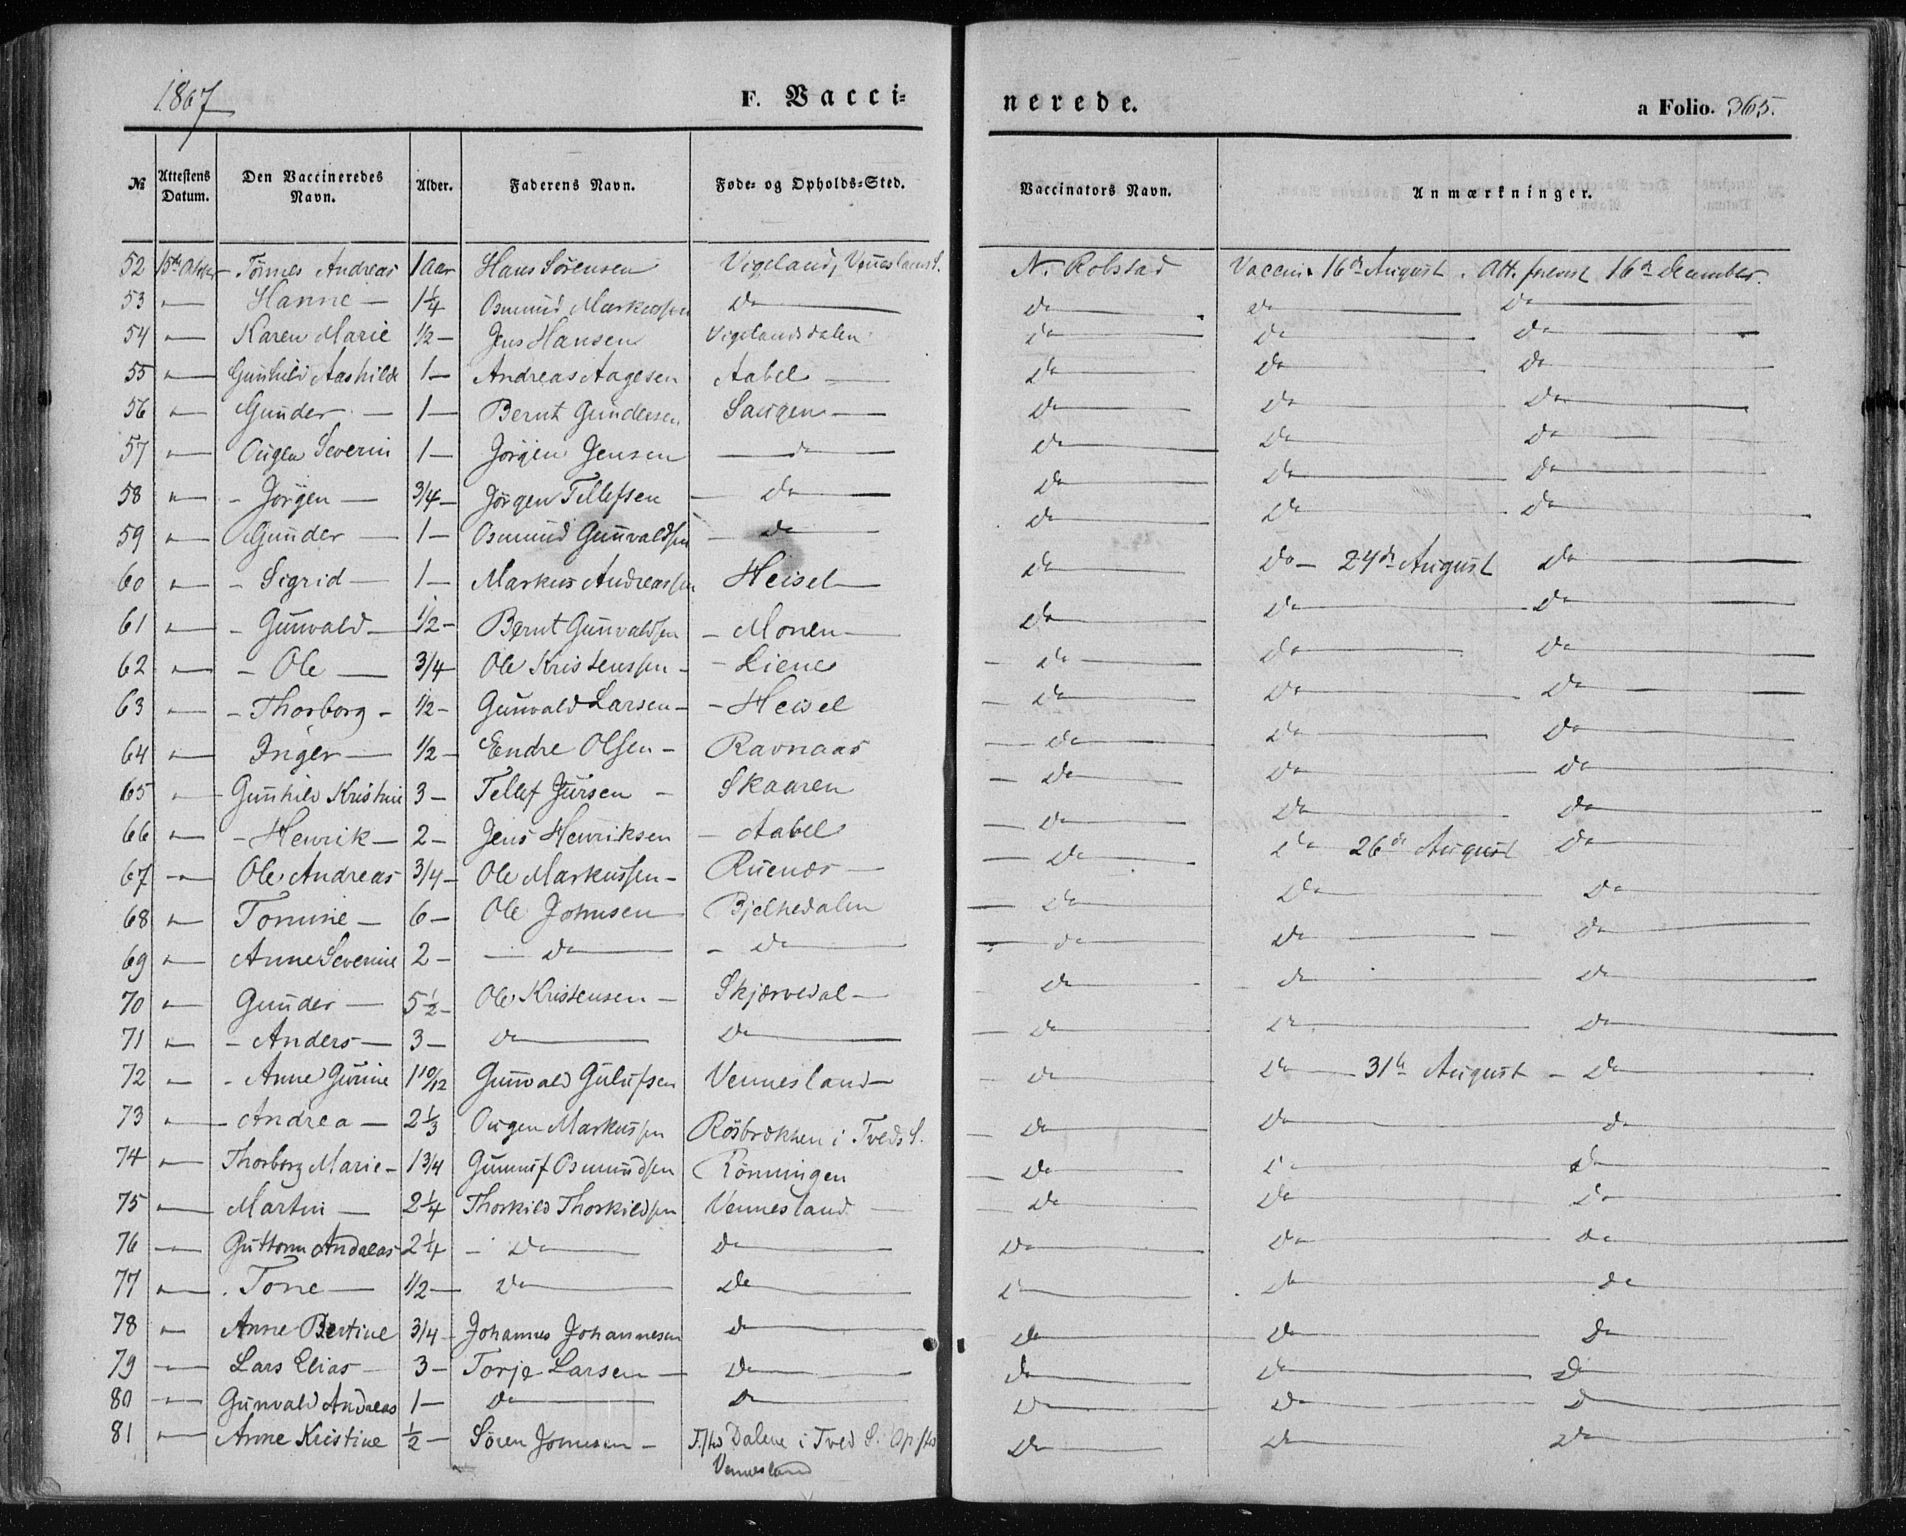 1867
F. Vacci-
nerede.
a Folio. 365.
№ Attestens Datum. Den Vaccineredes Navn. Alder. Faderens Navn. Føde- og Opholds-Sted. Vaccinators Navn. Anmærkninger.
52 15de Tønnes Andreas 1 Aar Hans Sørensen Vigeland, N. Robstad Vaccin. 16de August. Att. 16de December.
53 " Hanne 1 1/4 Osmund Markussen Do Do Do Do
54 " Karen Marie 1/2 Jens Hansen Vigelandsdalen Do Do Do
55 " Gunhild Aashilde 1 Andreas Aagesen Aabel Do Do Do
56 " Gunder 1 Bernt Gundersen Saugen Do Do Do
57 " Ougen Severin 1 Jörgen Jensen do Do Do Do
58 " Jörgen 3/4 Jörgen Tellefsen Do Do Do Do
59 " Gunder 1 Osmund Gunvaldsen Do Do Do Do
60 " Sigrid 1 Markus Andreassen Heisel Do Do 24de August Do
61 " Gunvald 1/2 Bernt Gunvaldsen Monen Do Do Do
62 " Ole 3/4 Ole Kristenssen Liene Do Do Do
63 " Thorborg 1/2 Gunvald Larsen Heisel Do Do Do
64 " Inger 1/2 Endre Olsen Ravnaas Do Do Do
65 " Gunhild Kristine 3 Tellef Jürsen Skaaren Do Do Do
66 " Henrik 2 Jens Henriksen Aabel Do Do Do
67 " Ole Andreas 3/4 Ole Markussen Ruenes Do Do 26de August Do
68 " Tomine 6 Ole Johnsen Bjelkedalen Do Do Do
69 " Anne Severine 2 Do Do Do Do Do
70 " Gunder 5 1/2 Ole Kristensen Skjærvedal Do Do Do
71 " Anders 3 Do Do Do Do Do
72 " Anne Gurine 1 10/12 Gunvald Gulufsen Vennesland Do Do 31te August Do
73 " Andrea 2 1/3 Ougen Markussen Rösbrokken i Tveds S. Do Do Do
74 " Thorborg Marie 1 3/4 Gunnuf Osmundsen Rönningen Do Do Do
75 " Martin 2 1/4 Thorkild Thorkildsen Vennesland Do Do Do
76 " Guttorm Andreas 2 1/4 Do Do Do Do Do
77 " Tone 1/2 Do Do Do Do Do
78 " Anne Bertine 3/4 Johannes Johannesen Do Do Do Do
79 " Lars Elias 3 Torje Larsen Do Do Do Do
80 " Gunvald Andreas 1 Do Do Do Do Do
81 " Anne Kristine 1/2 Sören Jonesen F.sted Dalene i Tved S. Op.sted Do Do Do
Vennesland